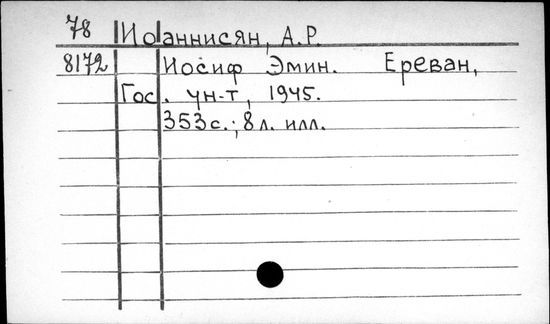 78 Иоаннисян, А.Р.
8172 Иосиф Эмин. Ереван,
Гос. ун-т, 1945.
353с.; 8л. илл.